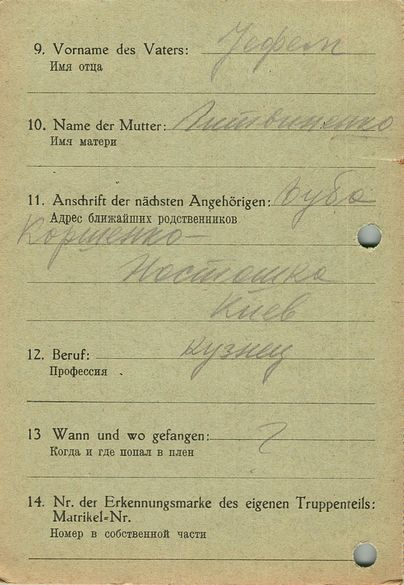 9. Vorname des Vaters: Јефем
Имя отца
10. Name der Mutter: Литвиненко
Имя матери
11. Anschrift der nächsten Angehörigen:
Адрес ближайших родственников
Коршенко-
Настошка
Киев
12. Beruf: кузнец
Профессия
13 Wann und wo gefangen: ?
Когда и где попал в плен
14. Nr. der Erkennungsmarke des eigenen Truppenteils:
Matrikel-Nr.
Номер в собственной части